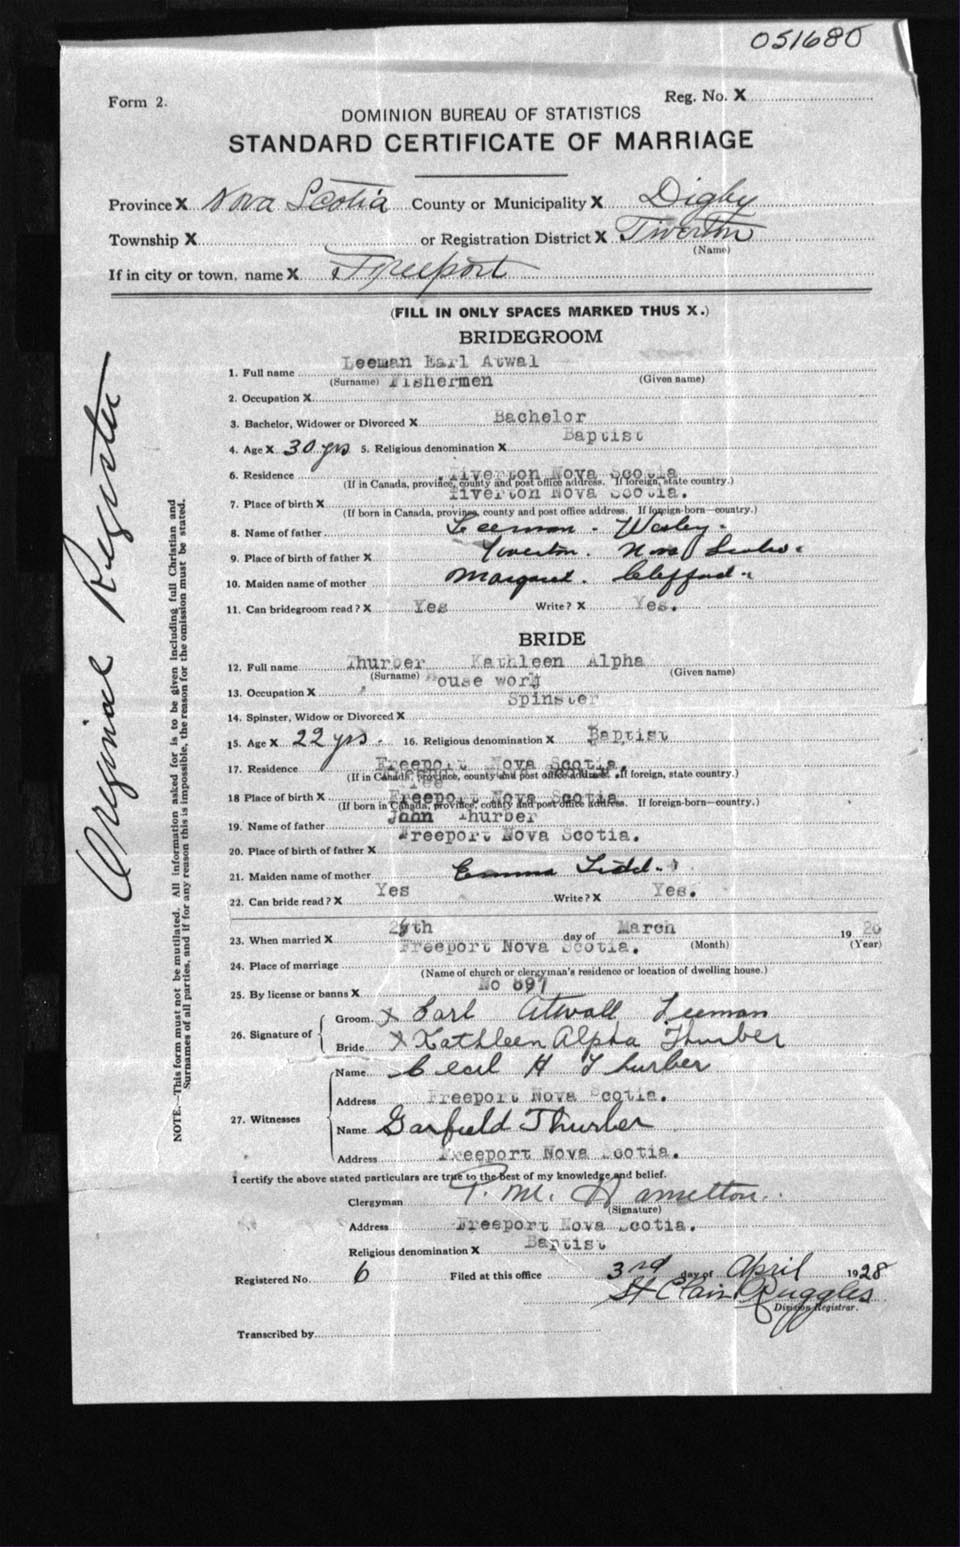 051680
Form 2.
Reg. No. X
DOMINION BUREAU OF STATISTICS
STANDARD CERTIFICATE OF MARRIAGE
Province X Nova Scotia County or Municipality X Digby
Township X or Registration District X Tiverton
(Name)
If in city or town, name X Freeport
(FILL IN ONLY SPACES MARKED THUS X.)
BRIDEGROOM
1. Full name Leeman Earl Atwal
(Surname) (Given name)
2. Occupation X Fishermen
3. Bachelor, Widower or Divorced X Bachelor
4. Age X 30 yrs 5. Religious denomination X Baptist
6. Residence Tiverton Nova Scotia
(If in Canada, province, county and post office address. If foreign, state country.)
7. Place of birth X Tiverton Nova Scotia.
(If born in Canada, province, county and post office address. If foreign-born—country.)
8. Name of father Leeman. Wesley.
9. Place of birth of father X Tiverton. Nova Scotia.
10. Maiden name of mother Margaret. Clifford.
11. Can bridegroom read? X Yes Write? X Yes.
BRIDE
12. Full name Thurber Kathleen Alpha
(Surname) (Given name)
13. Occupation X ouse work
14. Spinster, Widow or Divorced X Spinster
15. Age X 22 yrs. 16. Religious denomination X Baptist
17. Residence Freeport Nova Scotia.
(If in Canada, province, county and post office address. If foreign, state country.)
18 Place of birth X Freeport Nova Scotia
(If born in Canada, province, county and post office address. If foreign-born—country.)
19. Name of father John Thurber
20. Place of birth of father X Freeport Nova Scotia.
21. Maiden name of mother Emma
22. Can bride read? X Yes Write? X Yes.
23. When married X day of March 19
(Month) (Year)
24. Place of marriage Freeport Nova Scotia.
(Name of church or clergyman's residence or location of dwelling house.)
25. By license or banns X No 897
26. Signature of Groom. X Earl Atwall Leeman
Bride X Kathleen Alpha Thurber
27. Witnesses Name Cecil H Thurber
Address Freeport Nova Scotia.
Name Garfield Thurber
Address Freeport Nova Scotia.
I certify the above stated particulars are true to the best of my knowledge and belief.
Clergyman P. M. Hamelton
(Signature)
Address Freeport Nova Scotia.
Religious denomination X Baptist
Registered No. 6 Filed at this office 3rd day of April 1928
St Clair Ruggles
Division Registrar.
Transcribed by
Original Register
NOTE.—This form must not be mutilated. All information asked for is to be given including full Christian and
Surnames of all parties, and if for any reason this is impossible, the reason for the omission must be stated.